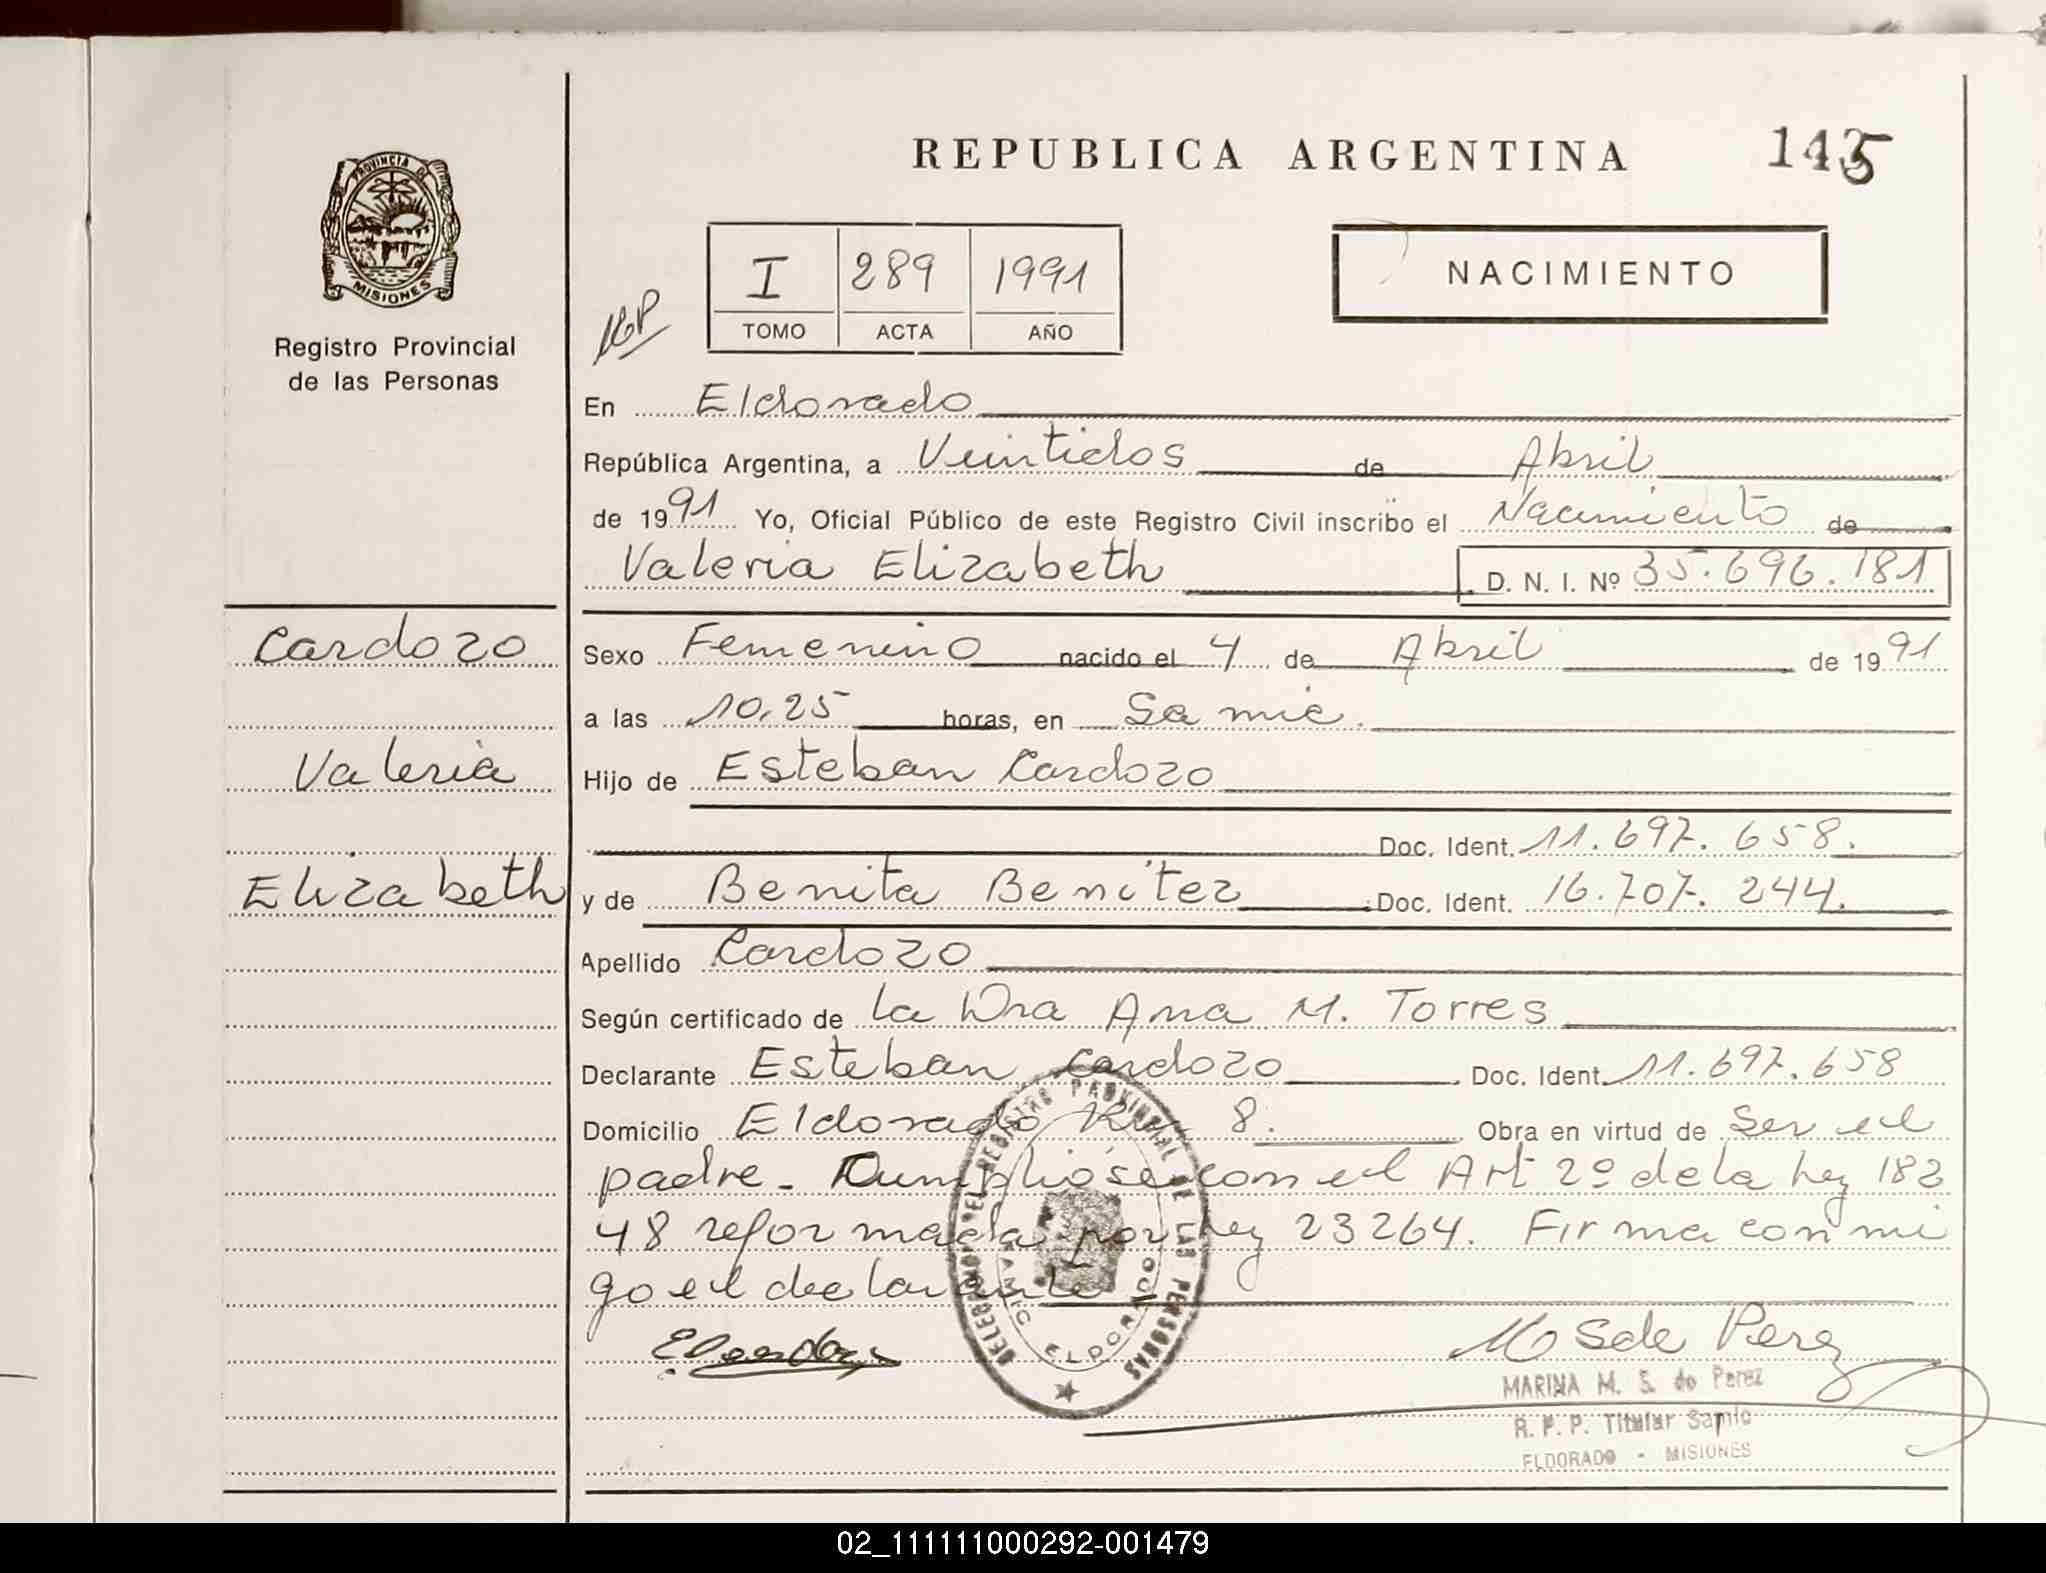 REPUBLICA ARGENTINA
145
PROVINCIA DE
MISIONES
Registro Provincial
de las Personas
I 289 1991
TOMO ACTA AÑO
NACIMIENTO
En Eldorado
República Argentina, a Veintidos de Abril
de 1991 Yo, Oficial Público de este Registro Civil inscribo el Nacimiento de
Valeria Elizabeth D. N. I. Nº 35.696.181
Cardozo
Valeria
Elizabeth
Sexo Femenino nacido el 4 de Abril de 1991
a las 10,25 horas, en Samic.
Hijo de Esteban Cardozo
Doc. Ident. 11.697.658.
y de Benita Benítez Doc. Ident. 16.707.244.
Apellido Cardozo
Según certificado de la Dra Ana M. Torres
Declarante Esteban Cardozo Doc. Ident. 11.697.658
Domicilio Eldorado Km 8. Obra en virtud de Ser el
padre. Cumplióse con el Art 2º de la ley 182
48 reformada por ley 23264. Firma conmi
go el declarante
DELEGACION DEL REGISTRO PROVINCIAL DE LAS PERSONAS
ELDORADO
M S de Perez
MARINA M. S. de Perez
R. P. P. Titular Samic
ELDORADO - MISIONES
02_111111000292-001479